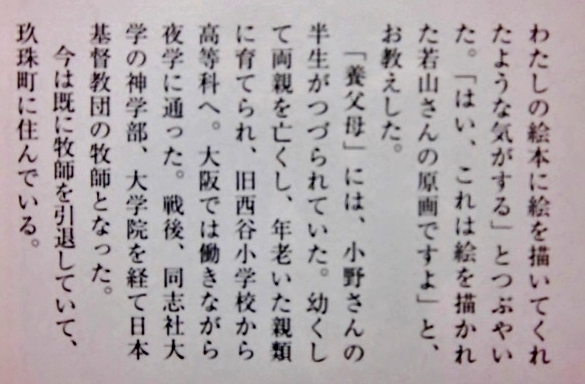 わたしの絵本に絵を描いてくれ
たような気がする」とつぶやい
た。「はい、これは絵を描かれ
た若山さんの原画ですよ」と、
お教えした。
「養父母」には、小野さんの
半生がつづられていた。幼くし
て両親を亡くし、年老いた親類
に育てられ、旧西谷小学校から
高等科へ。大阪では働きながら
夜学に通った。戦後、同志社大
学の神学部、大学院を経て日本
基督教団の牧師となった。
今は既に牧師を引退していて、
玖珠町に住んでいる。